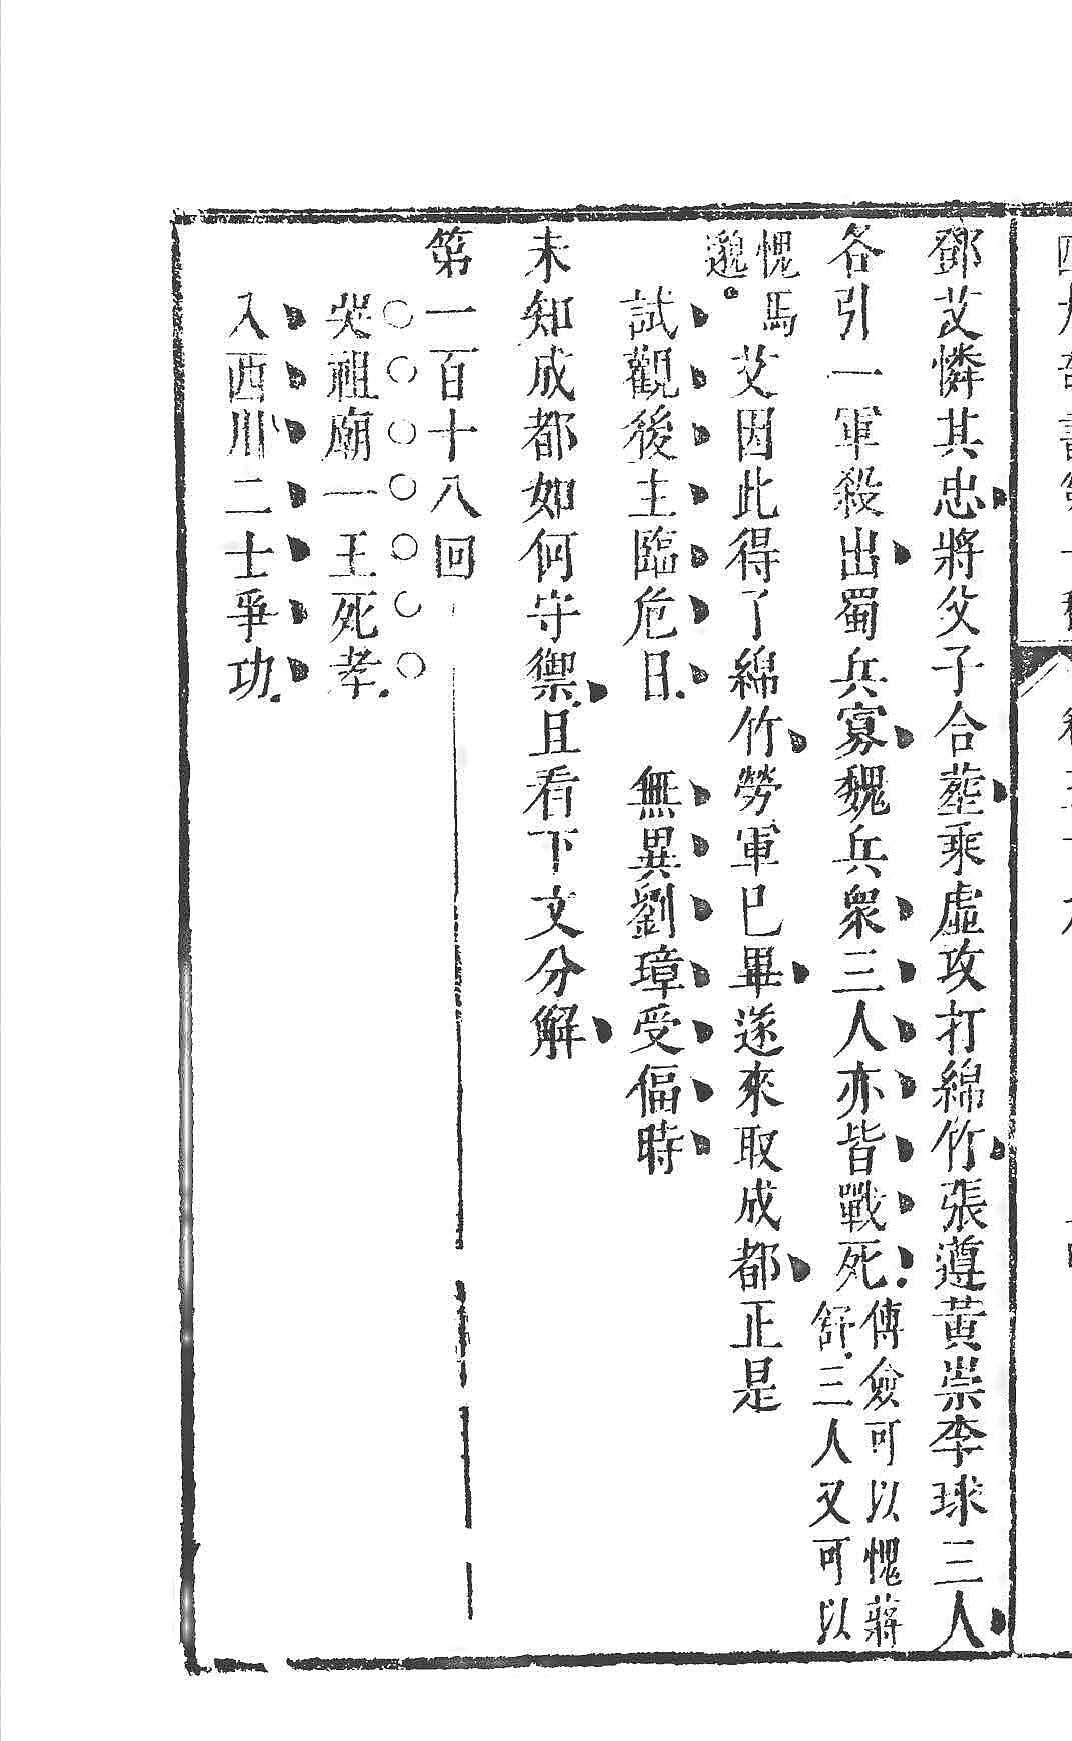 鄧艾憐其忠將父子合塟乘虛攻打綿竹張遵黃崇李球三人
各引一軍殺出蜀兵寡魏兵衆三人亦皆戰死
傅僉可以愧蔣
舒三人又可以
愧馬
邈
艾因此得了綿竹勞軍已畢遂來取成都正是
試觀後主臨危日 無異劉璋受偪時
未知成都如何守禦且看下文分解
第一百十八回
哭祖廟一王死孝
入西川二士爭功